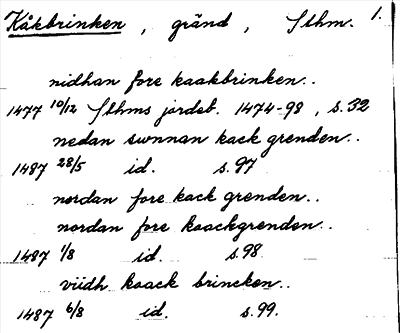 Kåkbrinken, gränd, Sthm. 1.
nidhan fore kaakbrinken..
1477 10/12 Sthms jordeb. 1474-98, s.32
nedan swnnan kack grenden..
1487 28/5 id. s.97
nordan fore kack grenden..
nordan fore kaackgrenden..
1487 1/8 id. s.98
viidh kaack brincken..
1487 6/8 id. s.99.